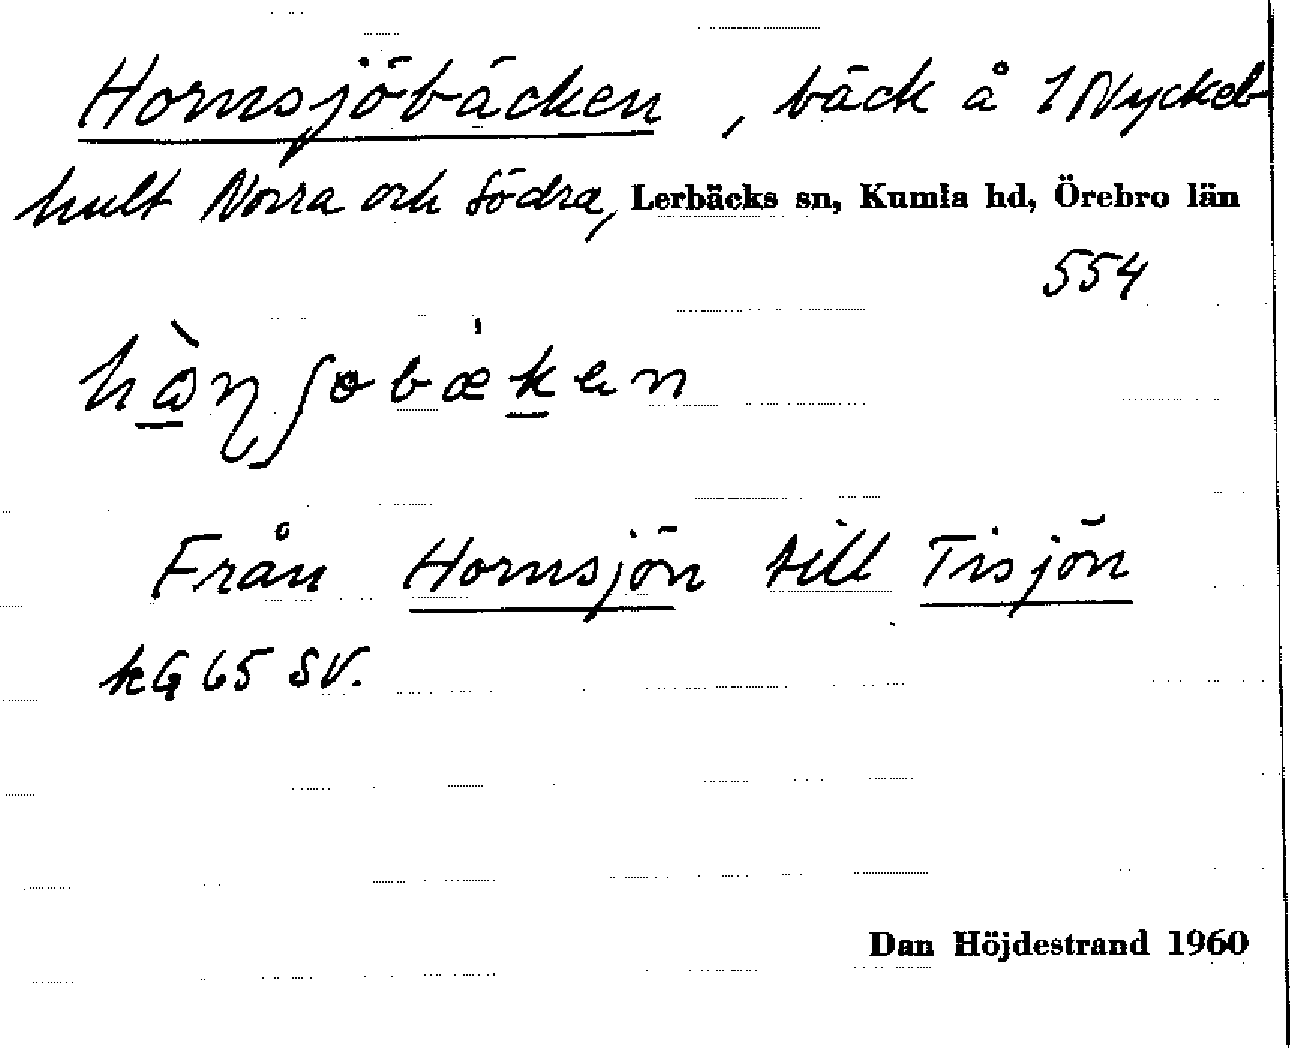 Hornsjöbäcken, bäck å 1 Nyckel-
hult Norra och Södra, Lerbäcks sn, Kumla hd, Örebro län
554
Från Hornsjön till Tisjön
kG 65 SV.
Dan Höjdestrand 1960